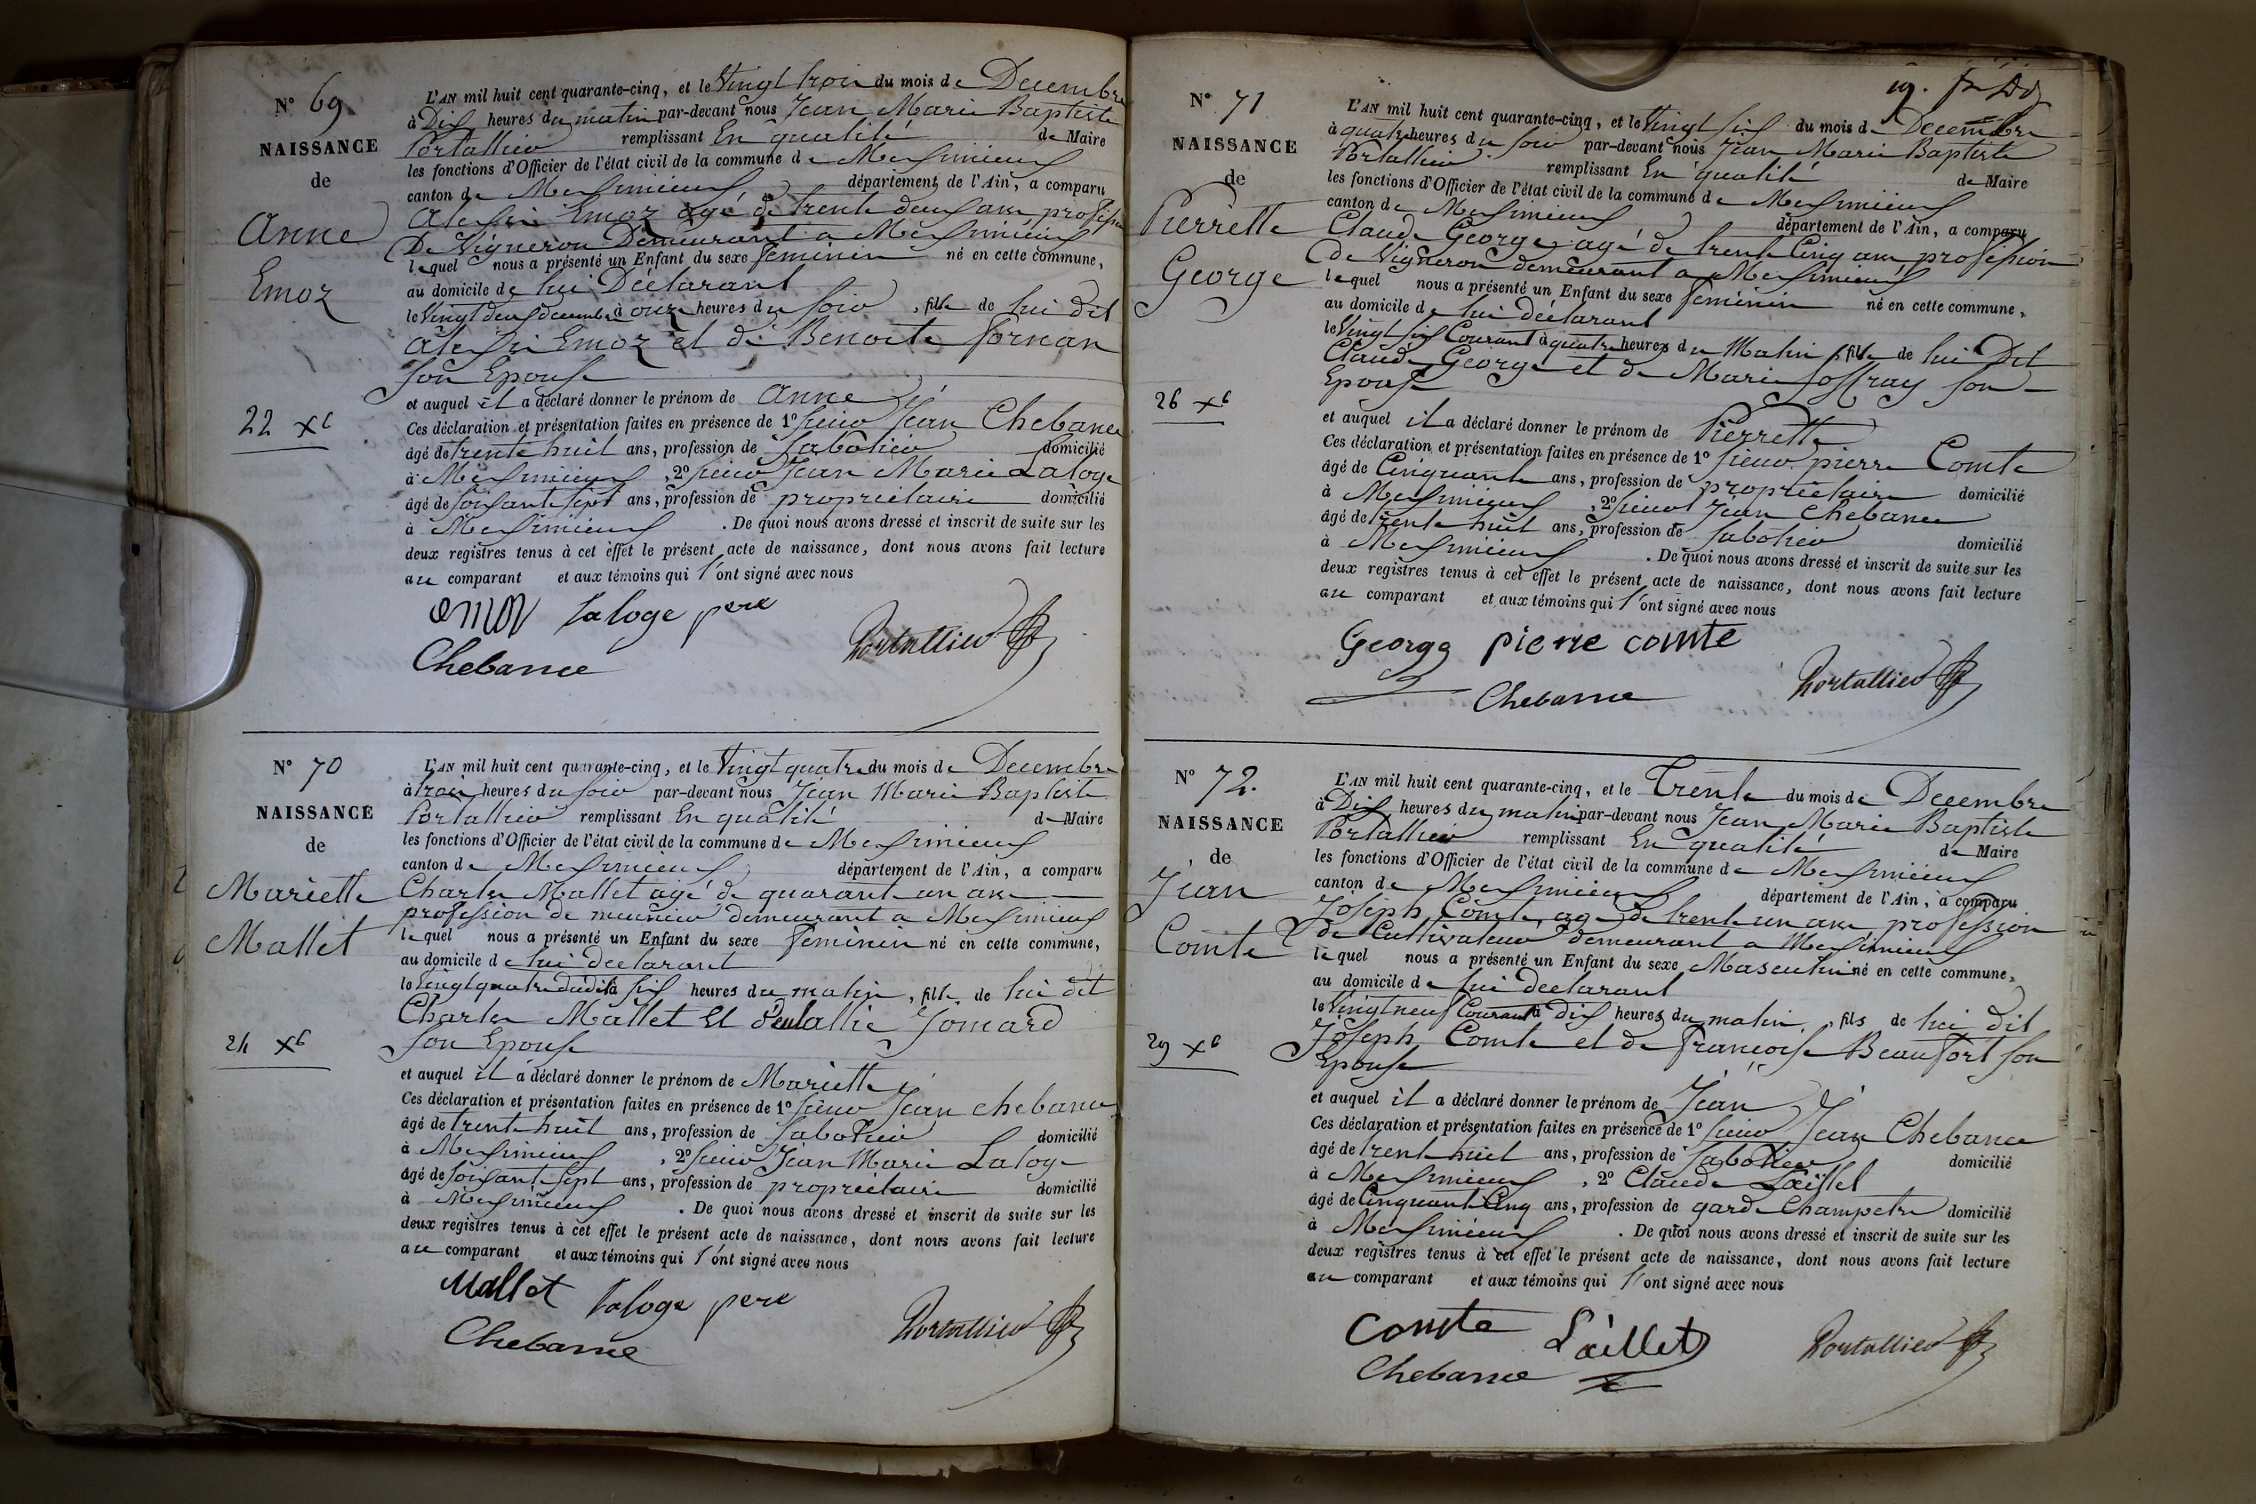 N° 69
NAISSANCE
de
Anne
Emoz
22 Xb
L'AN mil huit cent quarante-cinq, et le Vingt trois du mois de Decembre
à Dix heures du matin par-devant nous Jean Marie Baptiste
Portallier remplissant En qualité de Maire
les fonctions d'Officier de l'état civil de la commune de Meximieux
canton de Meximieux département de l'Ain, a comparu
Alexis Emoz agé de trente deux ans, profession
De Vigneron Demeurant a Meximieux
lequel nous a présenté un Enfant du sexe feminin né en cette commune,
au domicile de lui Déclarant
le Vingt deux decembre à onze heures du soir, fille de lui dit
Alexis Emoz et de Benoite fornan
son Epouse
et auquel il a déclaré donner le prénom de Anne
Ces déclaration et présentation faites en présence de 1° sieur Jean Chebance
âgé de trente huit ans, profession de sabotier domicilié
à Meximieux, 2° sieur Jean Marie Laloge
âgé de soixante sept ans, profession de propriétaire domicilié
à Meximieux. De quoi nous avons dressé et inscrit de suite sur les
deux registres tenus à cet effet le présent acte de naissance, dont nous avons fait lecture
au comparant et aux témoins qui l'ont signé avec nous
emoz laloge pere
Chebance Portallier
N° 70
NAISSANCE
de
Mariette
Mallet
24 Xb
L'AN mil huit cent quarante-cinq, et le Vingt quatre du mois de Decembre
à trois heures du soir par-devant nous Jean Marie Baptiste
Portallier remplissant En qualité de Maire
les fonctions d'Officier de l'état civil de la commune de Meximieux
canton de Meximieux département de l'Ain, a comparu
Charles Mallet agé de quarante un ans
profession de meunier demeurant a Meximieux
lequel nous a présenté un Enfant du sexe feminin né en cette commune,
au domicile de lui declarant
le Vingt quatre dudit à six heures du matin, fille de lui dit
Charles Mallet Et d'eulallie Jomard
son Epouse
et auquel il a déclaré donner le prénom de Mariette
Ces déclaration et présentation faites en présence de 1° sieur Jean chebance
âgé de trente huit ans, profession de sabotier domicilié
à Meximieux, 2° sieur Jean Marie Laloge
âgé de soixante sept ans, profession de propriétaire domicilié
à Meximieux. De quoi nous avons dressé et inscrit de suite sur les
deux registres tenus à cet effet le présent acte de naissance, dont nous avons fait lecture
au comparant et aux témoins qui l'ont signé avec nous
Mallet laloge pere
Chebance Portallier
19.
N° 71
NAISSANCE
de
Pierrette
George
26 Xb
L'AN mil huit cent quarante-cinq, et le Vingt six du mois de Decembre
à quatre heures du soir par-devant nous Jean Marie Baptiste
Portallier remplissant En qualité de Maire
les fonctions d'Officier de l'état civil de la commune de Meximieux
canton de Meximieux département de l'Ain, a comparu
Claude George agé de trente Cinq ans profession
de Vigneron demeurant a Meximieux
lequel nous a présenté un Enfant du sexe feminin né en cette commune,
au domicile de lui déclarant
le Vingt six Courant à quatre heures du Matin, fille de lui Dit
Claude George et de Marie Joffray son
Epouse
et auquel il a déclaré donner le prénom de Pierrette
Ces déclaration et présentation faites en présence de 1° sieur pierre Comte
âgé de Cinquante ans, profession de propriétaire domicilié
à Meximieux, 2° sieur Jean Chebance
âgé de trente huit ans, profession de sabotier domicilié
à Meximieux. De quoi nous avons dressé et inscrit de suite sur les
deux registres tenus à cet effet le présent acte de naissance, dont nous avons fait lecture
au comparant et aux témoins qui l'ont signé avec nous
George pierre comte
Chebance Portallier
N° 72.
NAISSANCE
de
Jean
Comte
29 Xb
L'AN mil huit cent quarante-cinq, et le Trente du mois de Decembre
à Dix heures du matin par-devant nous Jean Marie Baptiste
Portallier remplissant En qualité de Maire
les fonctions d'Officier de l'état civil de la commune de Meximieux
canton de Meximieux département de l'Ain, a comparu
Joseph Comte, age de trente un ans profession
de Cultivateur demeurant a Meximieux
lequel nous a présenté un Enfant du sexe Masculin né en cette commune,
au domicile de lui declarant
le Vingt neuf Courant à dix heures du matin, fils de lui dit
Joseph Comte et de francoise Beaufort son
Epouse
et auquel il a déclaré donner le prénom de Jean
Ces déclaration et présentation faites en présence de 1° sieur Jean Chebance
âgé de trente huit ans, profession de sabotier domicilié
à Meximieux, 2° Claude Laillet
âgé de Cinquante Cinq ans, profession de garde Champetre domicilié
à Meximieux. De quoi nous avons dressé et inscrit de suite sur les
deux registres tenus à cet effet le présent acte de naissance, dont nous avons fait lecture
au comparant et aux témoins qui l'ont signé avec nous
Comte Laillet
Chebance Portallier